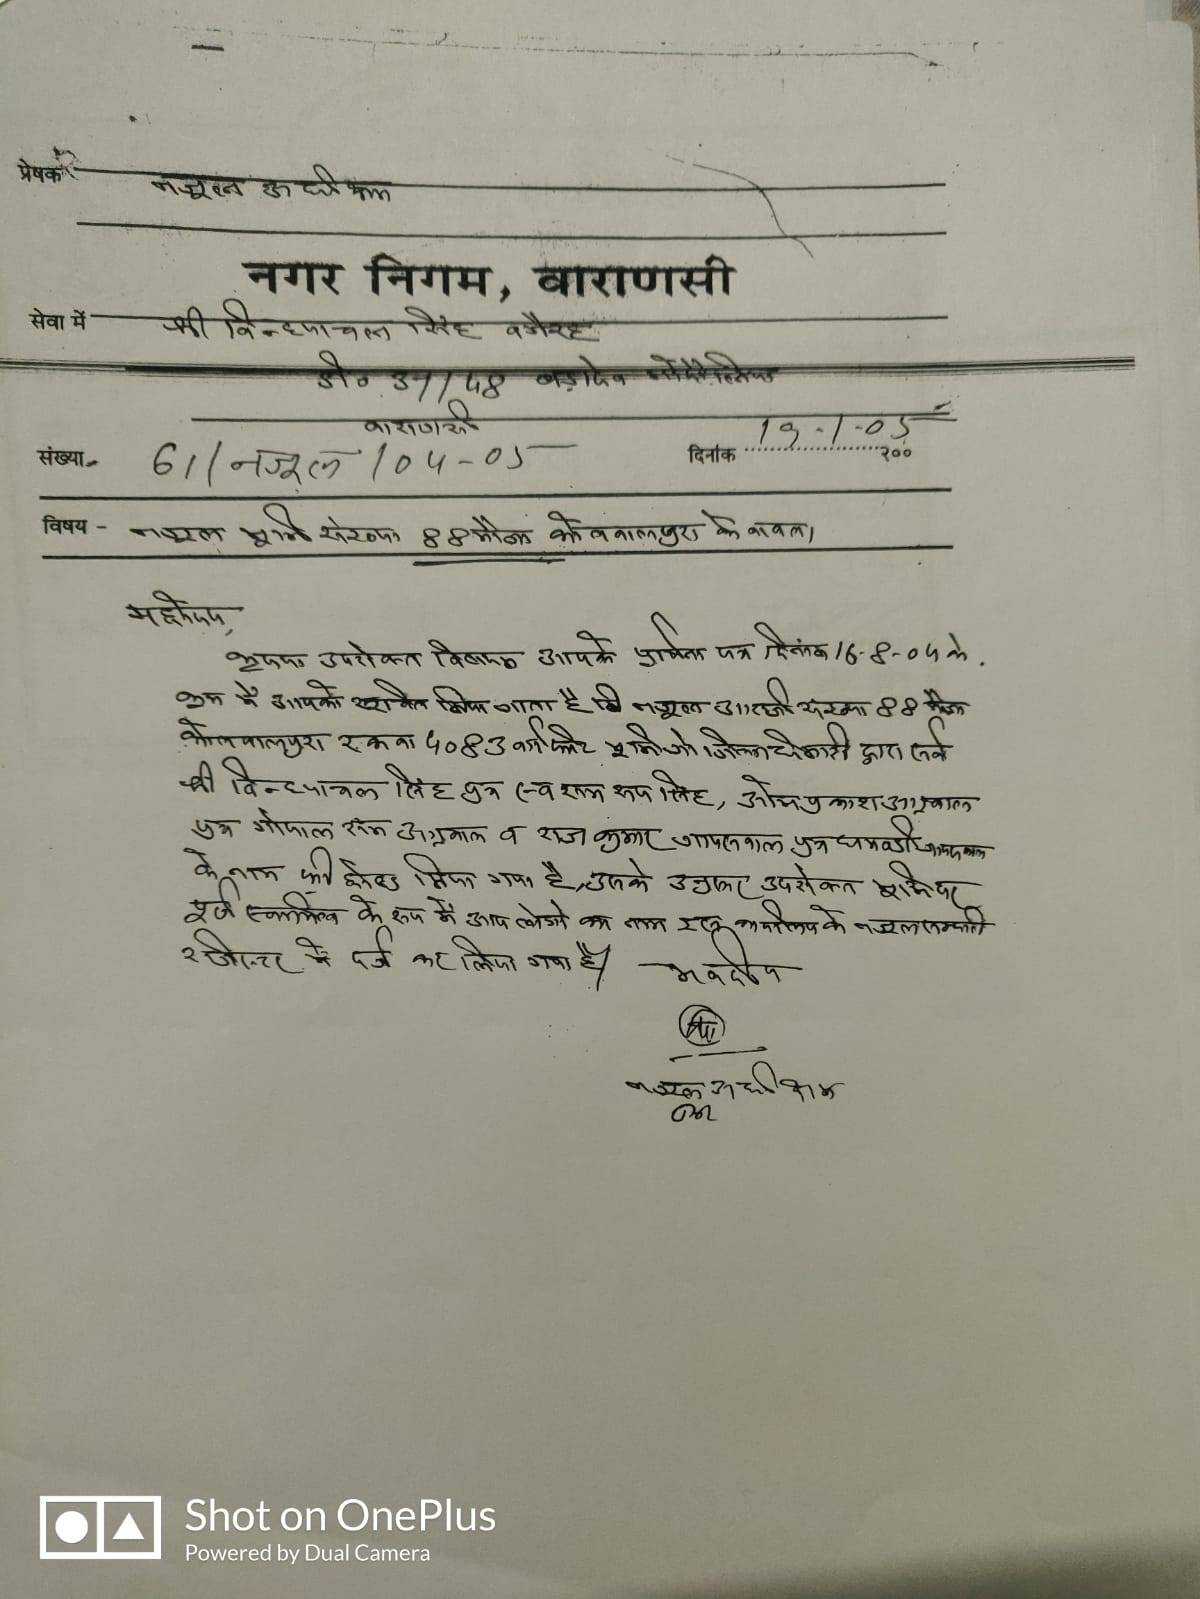 प्रेषक
नजूल अधीक्षक
नगर निगम, वाराणसी
सेवा में श्री विन्ध्याचल सिंह वगैरह
डी० 37/48 बड़ादेव
वाराणसी
संख्या- 61/नजूल/04-05 दिनांक 19-1-05 २००
विषय - नजूल भूमि संख्या 88 मौजा के बावत।
महोदय,
कृपया उपरोक्त विषयक आपके पत्र दिनांक 16-8-04 के
क्रम में आपको सूचित किया जाता है कि नजूल आराजी संख्या 88 मौजा
रकबा 4083 वर्गफीट भूमि जो जिलाधिकारी द्वारा सर्व
श्री विन्ध्याचल सिंह पुत्र स्व राम रूप सिंह, ओम प्रकाश अग्रवाल
पुत्र गोपाल राम अग्रवाल व राज कुमार जायसवाल पुत्र जायसवाल
के नाम फ्री होल्ड किया गया है, उसके अनुसार उपरोक्त भूमि पर
पूर्ण स्वामित्व के रूप में आप लोगो का नाम इस कार्यालय के नजूल सम्पत्ति
रजिस्टर में दर्ज कर लिया गया है।
भवदीय
नजूल अधीक्षक
Shot on OnePlus
Powered by Dual Camera